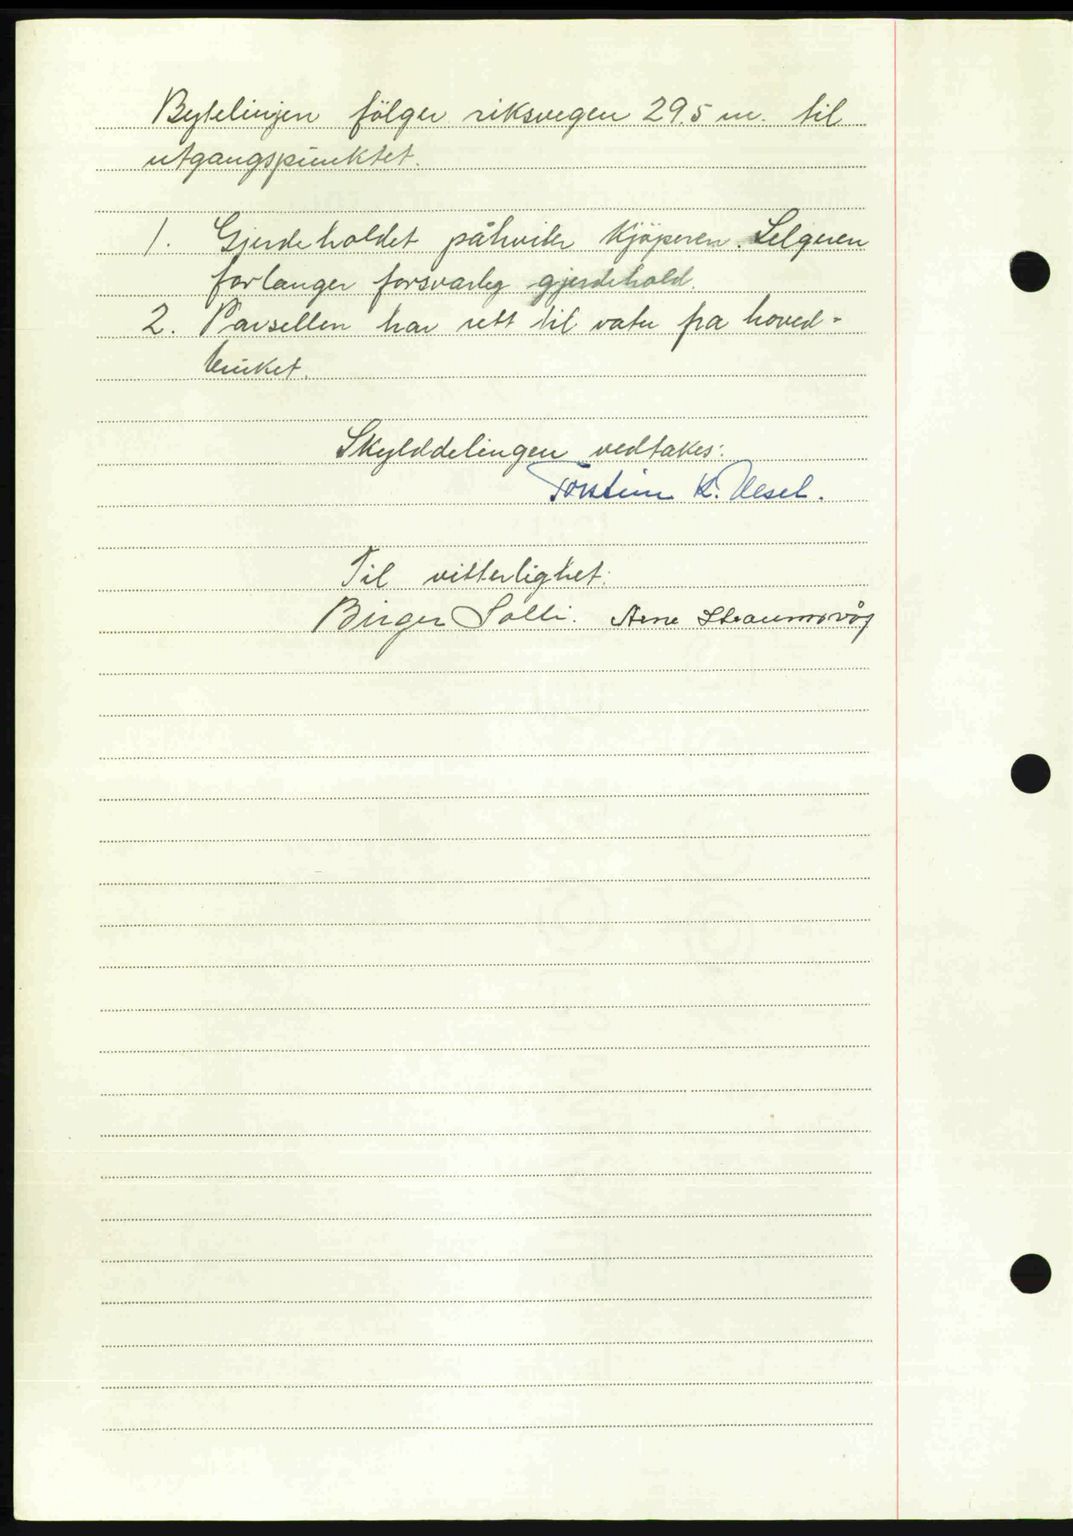 Bytelinjen fölger riksvegen 29.5 m. til
utgangspunktet.
1. Gjerdeholdet påhviler kjöperen. Selgeren
forlanger forsvarleg gjerdehold.
2. Parsellen har rett til vatn fra hoved-
bruket.
Skylddelingen vedtakes:
Torstein K.
Til vitterlighet:
Birger Solli. Arne Straumsvåg